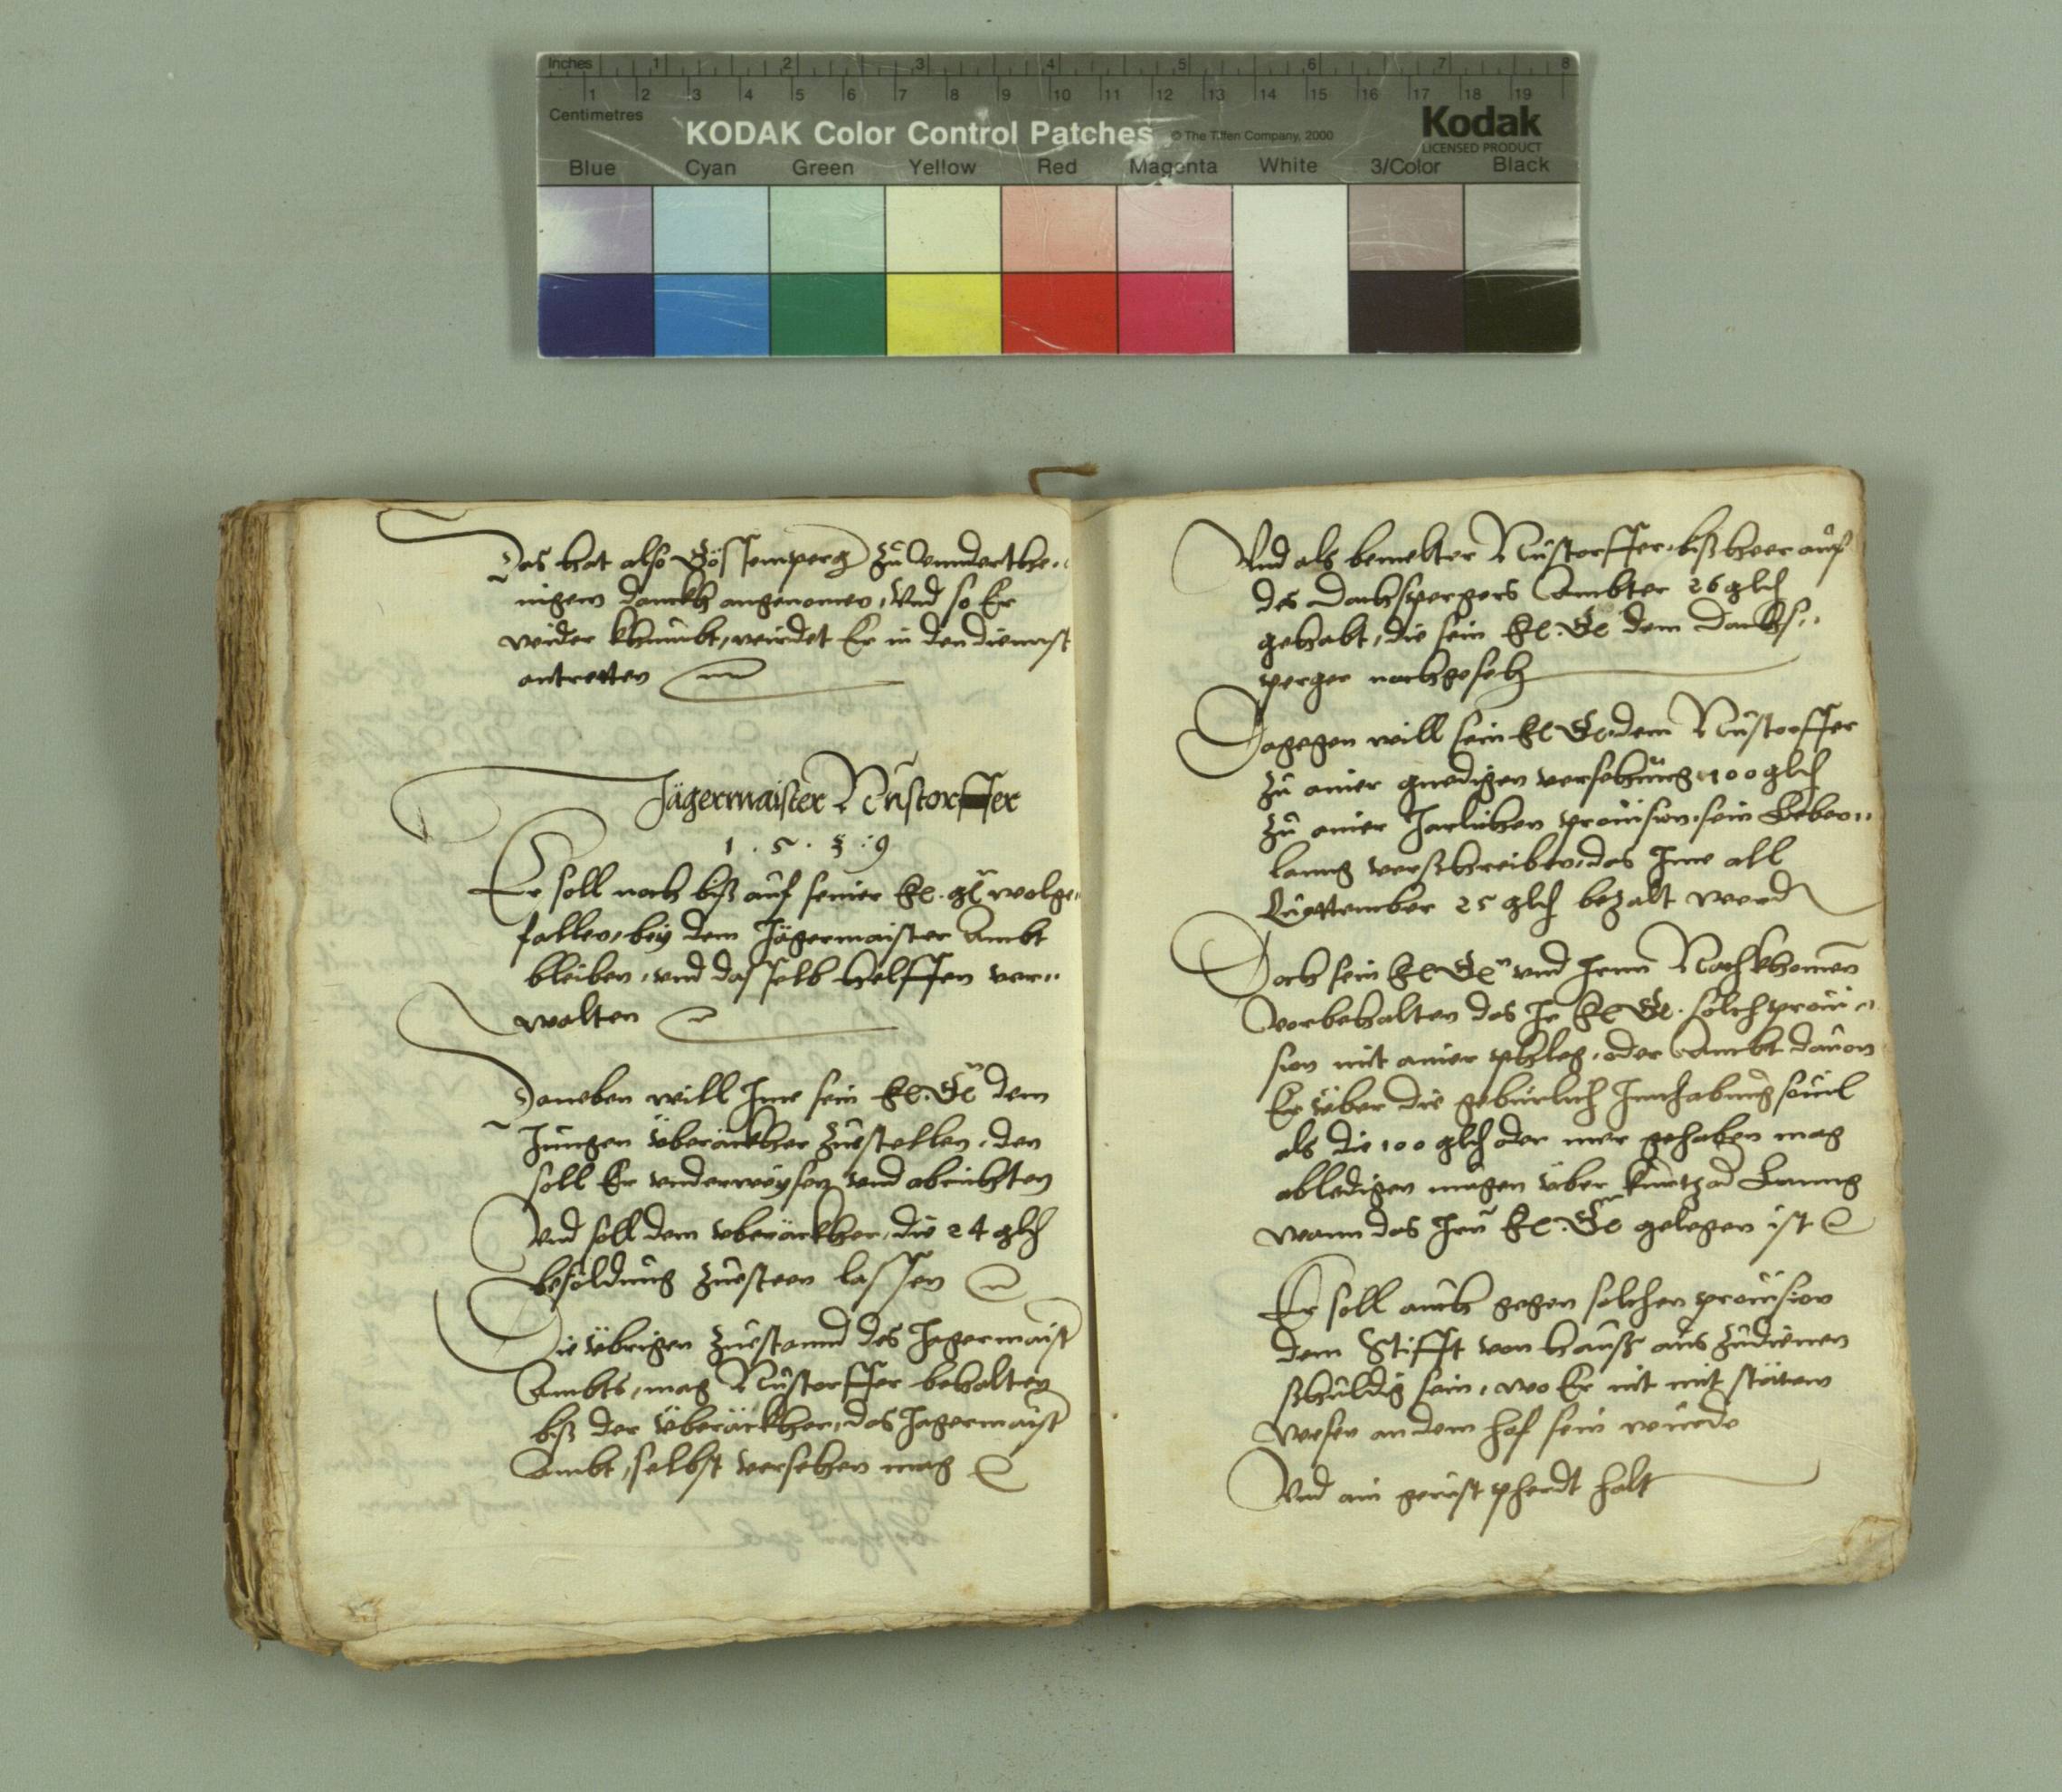 Inches 1 2 3 4 5 6 7 8
1 2 3 4 5 6 7 8 9 10 11 12 13 14 15 16 17 18 19
Centimetres
KODAK Color Control Patches © The Tiffen Company, 2000 Kodak
LICENSED PRODUCT
Blue Cyan Green Yellow Red Magenta White 3/Color Black
Das hat also zu vnnderthe..
nigem danckh angenomen, Vnd so Er
wider khumbt, wirdet Er in den diennst
antretten
Jägermaister Nustorffer
1.5.3.9
Er soll noch biß auf seiner fr. gn. wolge..
fallen, bey dem Jägermaister Ambt
bleiben, vnd dasselb helffen ver..
walten
Daneben will Ime sein fr. Gn. dem
Jungen Überäckher zuestellen, den
soll Er vnderweysen vnd abrichten
Vnd soll dem überäckher, die 24 gld
besoldung zuesteen lassen
Die übrigen zuestannd des Jegermaist
Ambts, mag Nustorffer behalten
biß der Überäckher, das Jagermaist
Ambt, selbst versehen mag
Vnd als bemelter Nustorffer, bißheer auf
des Dachspergers Ambter 26 gld
gehabt, die sein fr. Gn. dem Dachs..
perger nachgeseh
Dagegen will sein fr. Gn. dem Nustorffer
zu ainer gnedigen versehung 100 gld
zu ainer Jarlichen prouision, sein Leben..
lanng verschreiben, das Ime all
Quottember 25 gld bezalt werd
Doch sein fr. Gn. vnd Irnn Nachkhomen
vorbehalten das Ir fr. Gn. solch proui..
sion mit ainer phleg, oder Ambt dauon
Er über die gebürlich Innhabung souil
als die 100 gld oder mer gehaben mag
abledigen mögen über kurtz od Lanng
wann das Irn fr. Gn. gelegen ist
Er soll auch gegen solchen prouision
dem Stifft von hauß aus zudienen
schuldig sein, wo Er nit mit stätem
wesen an dem hof sein wurde
Vnd ain gerüst pherdt halt